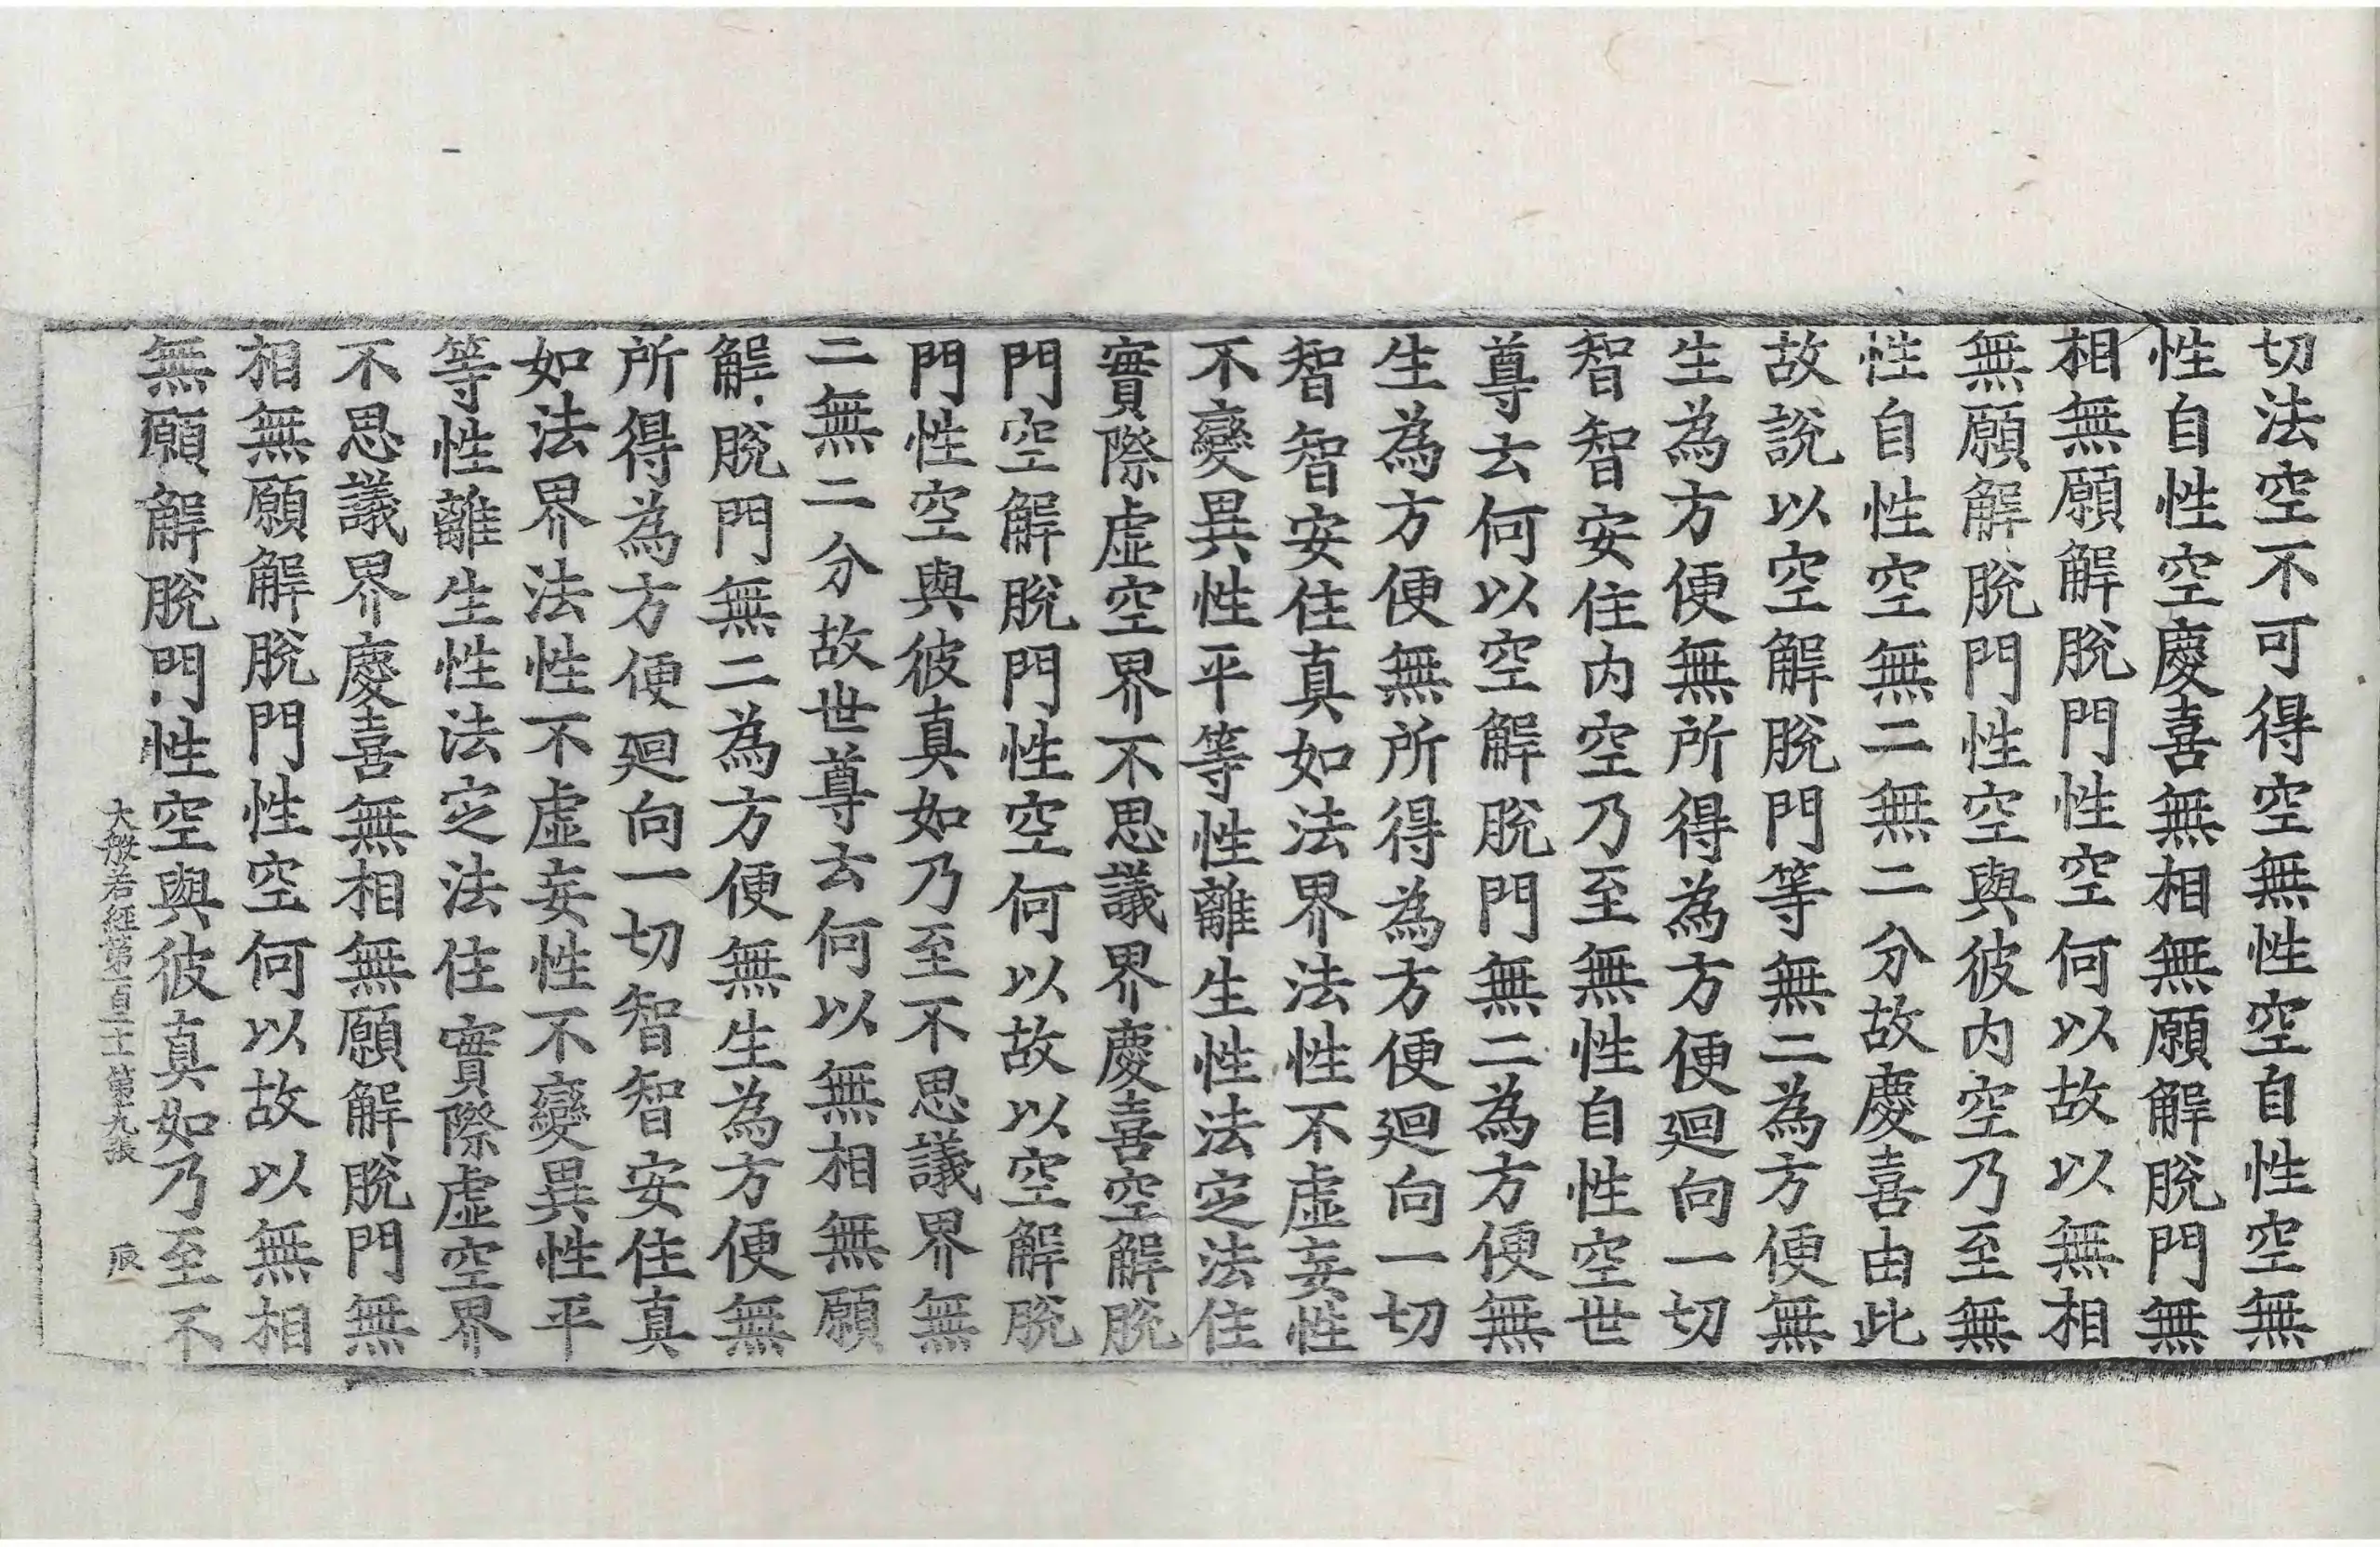 切法空不可得空無性空自性空無
性自性空慶喜無相無願解脫門無
相無願解脫門性空何以故以無相
無願解脫門性空與彼内空乃至無
性自性空無二無二分故慶喜由此
故說以空解脫門等無二為方便無
生為方便無所得為方便廻向一切
智智安住内空乃至無性自性空世
尊云何以空解脫門無二為方便無
生為方便無所得為方便廻向一切
智智安住真如法界法性不虛妄性
不變異性平等性離生性法定法住
實際虛空界不思議界慶喜空解脫
門空解脫門性空何以故以空解脫
門性空與彼真如乃至不思議界無
二無二分故世尊云何以無相無願
解脫門無二為方便無生為方便無
所得為方便廻向一切智智安住真
如法界法性不虛妄性不變異性平
等性離生性法定法住實際虛空界
不思議界慶喜無相無願解脫門無
相無願解脫門性空何以故以無相
無願解脫門性空與彼真如乃至不
大般若經第一百二十 第九張 辰